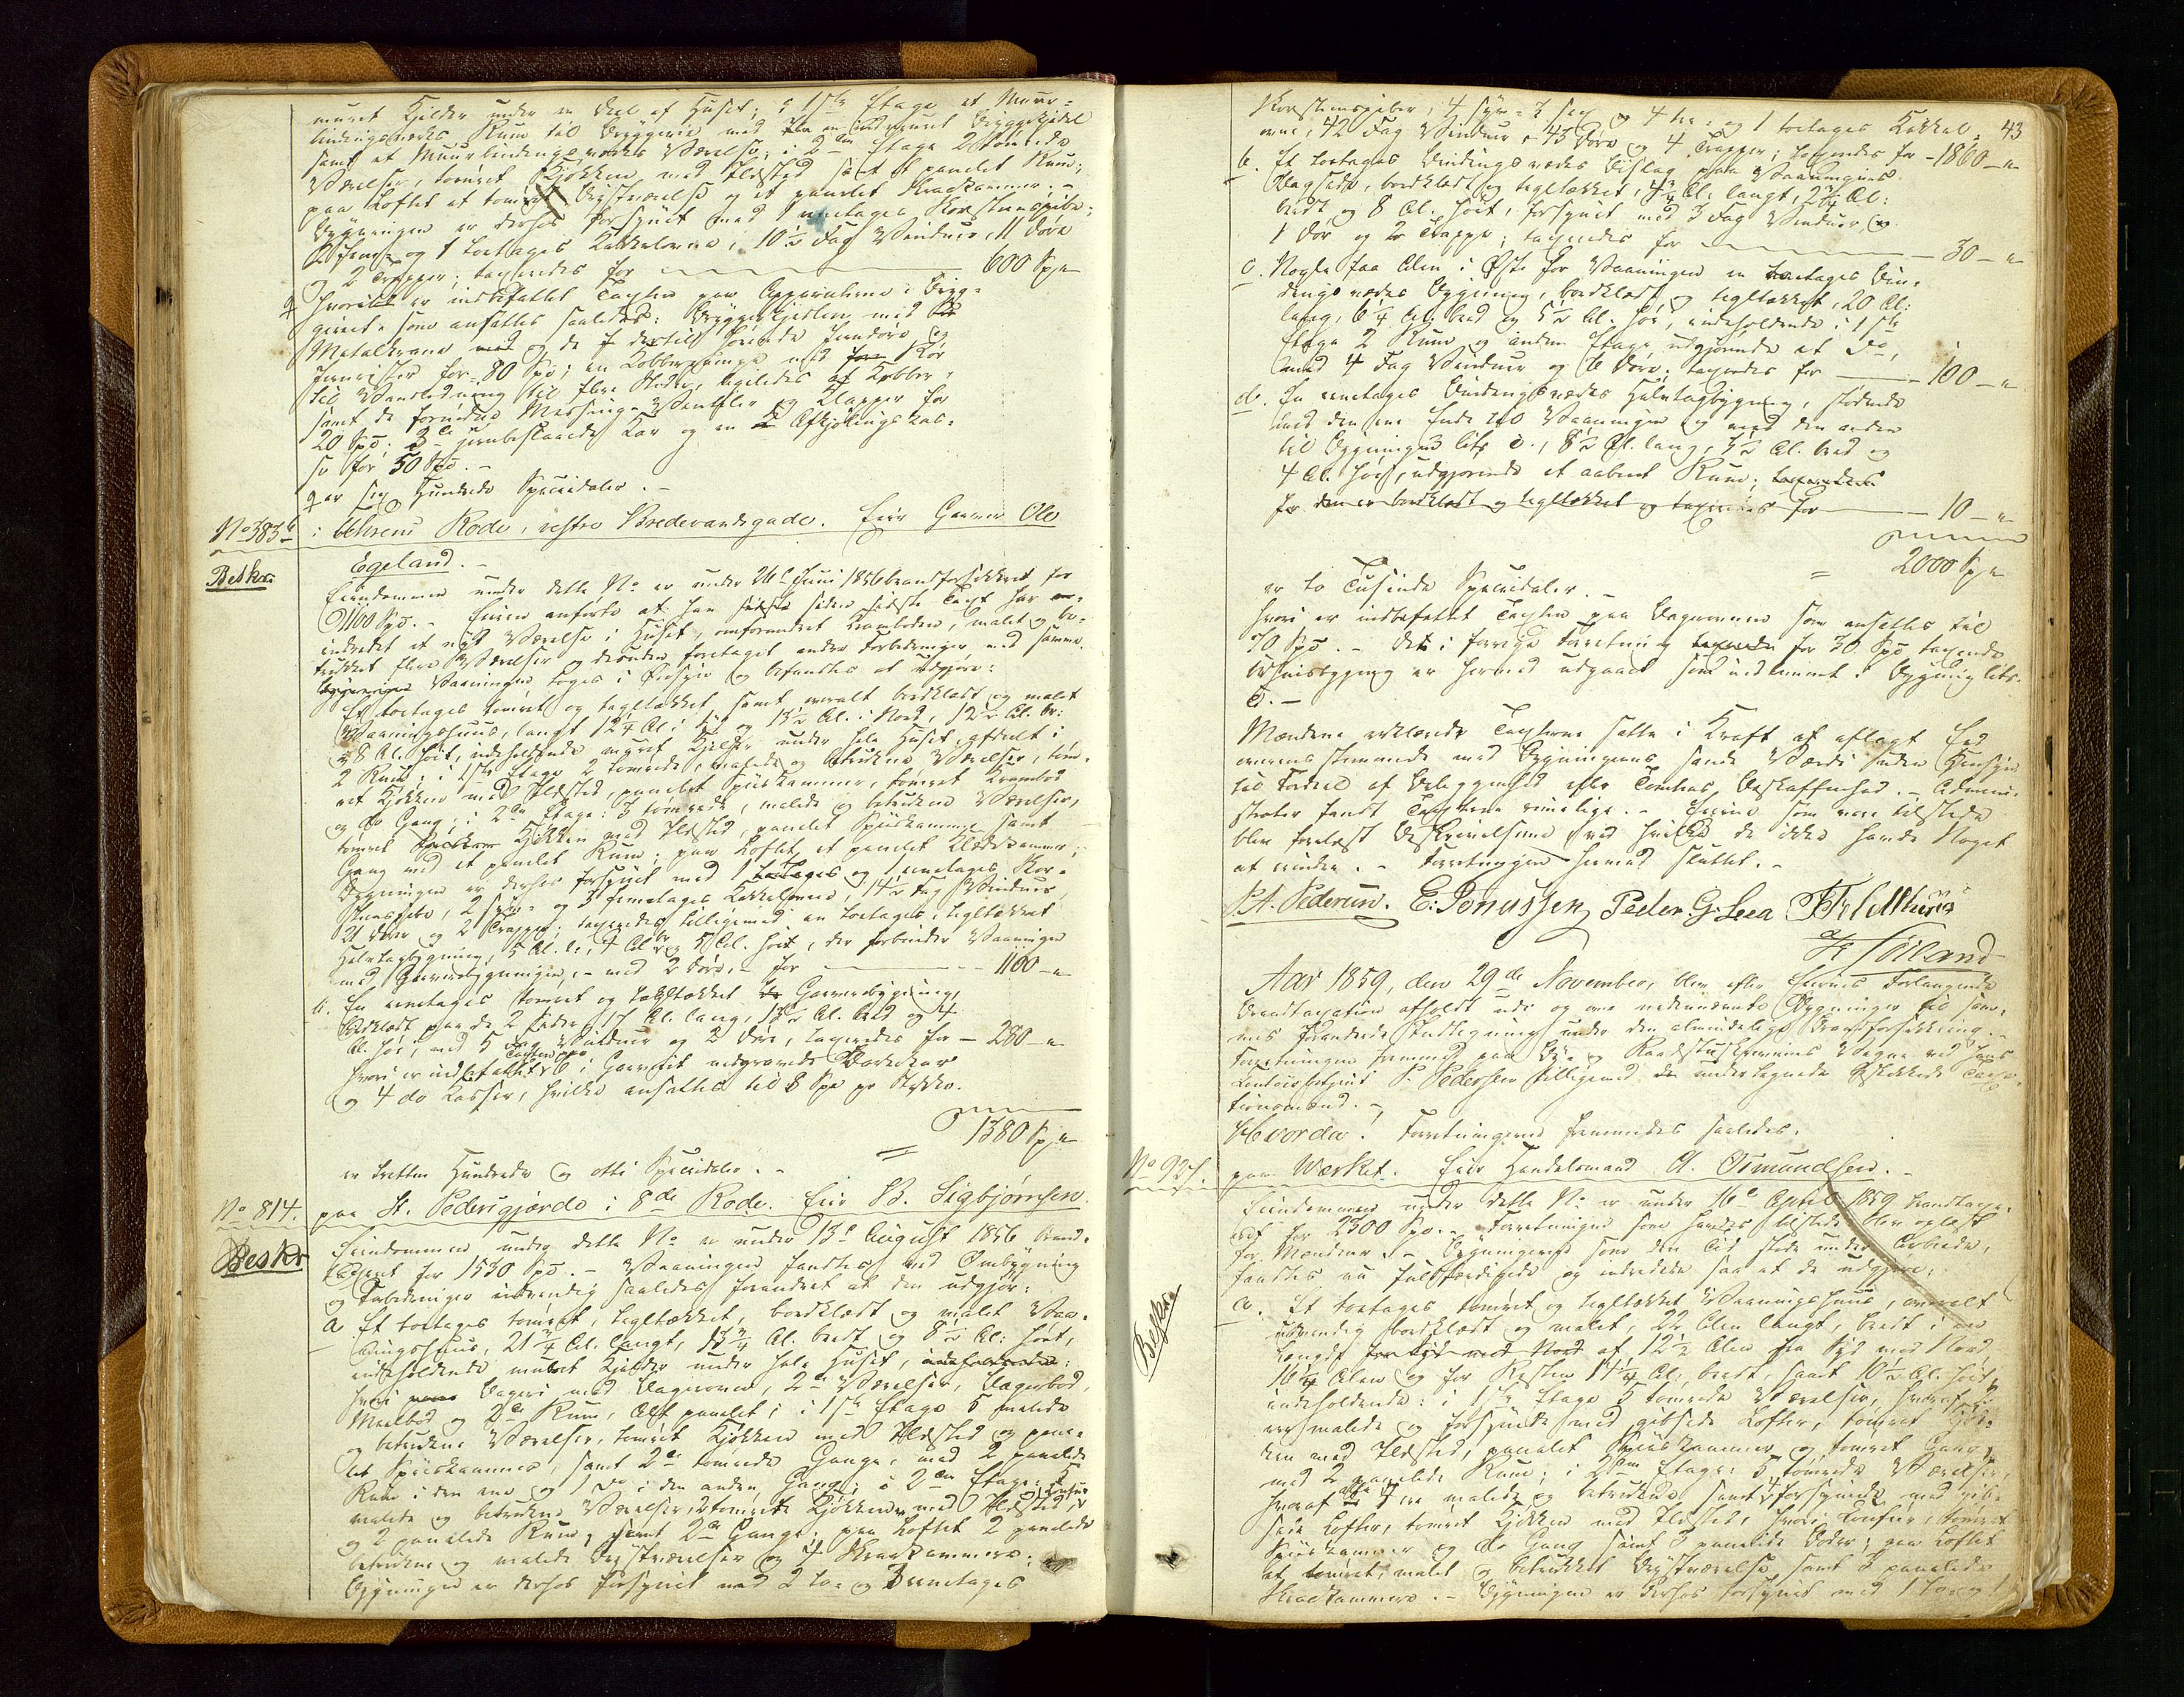 muret Kjelder under en Deel af Huset; i 1ste Etage et Muur-
bindingsværks Rum til Bryggerie med en indmuret Bryggekjedel
samt et Muurbindingsværks Værelse; i 2den Etage 2 tømrede
Værelser, tømret Kjøkken med Ildsted samt et panelet Rum;
paa Loftet et tømret Qvistværelse og et panelet Skraakammer. -
Bygningen er derhos forsynet med 1 eenetages Skorsteenspibe,
og 1 toetages Kakkelovne, 10½ Fag Vinduer, 11 Døre
og 2 Trapper; taxeredes for 600 Spd
hvorudi er indbefattet Taxten paa Apparaterne i Bryg-
geriet som ansattes saaledes: Bryggekjedlen med
Metalkrane og de dertil hørende Jerndøre og
Jernrister for 80 Spd; en Kobberpumpe med Rør
til Vandledning til flere Steder, ligeledes af Kobber
samt de fornødne Messing-Ventiler og Klapper for
20 Spd; 3de jernbeslaaede Kar og en Afkjølingskas-
se for 50 Spd. -
er sex Hundrede Speciedaler. -
No 383b i Behrens Rode, vestre Bredevandsgade. Eier Garver Ole
Egeland. -
Beskr.
Eiendommen under dette No er under 26de Juni 1856 brandforsikkret for
1160 Spd. - Eieren anførte at han siden sidste Taxt har
indredet et nyt Værelse i Huset, omforandret Kramboden, malet og be-
trukket flere Værelser og desuden foretaget andre Forbedringer med samme.
Vaaningen toges i Øiesyn og befandtes at udgjøre:
Et toetages tømret og tegltækket, samt overalt bordklædt og malet
Vaaningshuus, langt 12¼ Al. i Syd og 13½ Al. i Nord, 12½ Al. br:
og 8 Al. høit, indeholdende muret Kjelder under hele Huset, afdeelt i
2 Rum; i 1ste Etage 2 tømrede, malede og betrukne Værelser, tøm-
ret Kjøkken med Ildsted, panelet Spiiskammer, tømret Krambod
og do Gang; i 2den Etage: 3 tømrede, malede og betrukne Værelser,
tømret Kjøkken med Ildsted, panelet Spiiskammer samt
Gang med et panelet Rum; paa Loftet et panelet Klædekammer;
Bygningen er derhos forsynet med 1 toetages og 1 eenetages Skor-
steenspibe, 2 og 3 femetages Kakkelovne, 14½ Fag Vinduer
21 Døre og 2 Trapper; taxeredes tilligemed en toetages, tegltækket
Halvtagbygning, 5 Al. l., 4 Al. br. og 5 Al. høit, der forbinder Vaaningen
med Garverbygningen, - med 2 Døre, - for 1100 - "
b. En eenetages tømret og tegltækket Garverbygning,
bordklædt paa de 2 Sider, 17 Al. lang, 13½ Al. bred og 4
Al. høi, med 5 Fag Vinduer og 2 Døre, taxeredes for - 280 - "
hvori er indbefattet Taxten paa 6 i Garveriet nedgravede Barkekar
og 4 do Kasser, hvilke ansattes til 8 Spd pr Stykke.
1380 Spd
er tretten Hundrede og otti Speciedaler. -
No 814. paa St. Pedersgjærde i 8de Rode. Eier B. Sigbjørnsen.
Beskr
Eiendommen under dette No er under 13de August 1856 brand-
taxeret for 1530 Spd. - Vaaningen fandtes ved Ombygning
og Forbedringer indvendig saaledes forandret at den udgjør:
a Et toetages tømret, tegltækket, bordklædt og malet Vaa-
ningshuus, 21¾ Al. langt, 13¾ Al. bredt og 8½ Al. høit,
indeholdende muret Kjelder under hele Huset,
hvori Bageri med Bagerovn, 2de Værelser, Bagerbod,
Meelbod og 2de Rum, Alt panelet; i 1ste Etage 5 malede
og betrukne Værelser, tømret Kjøkken med Ildsted og pane-
let Spiiskammer, samt 2de tømrede Gange, med 2 panelede
Rum i den ene og 1 do i den anden Gang; i 2den Etage: 5
malede og betrukne Værelser, 2 tømrede Kjøkkener med Ildsted,
og 2 panelede Rum, samt 2de Gange; paa Loftet 2 panelede
betrukne og malede Qvistværelser og 4 Skraakammere;
Bygningen er derhos forsynet med 2 to- og 3 eenetages
43
Skorsteenspiber, 4 fyr-, 2 sex og 4 tre- og 1 toetages Kakkel-
ovne, 42 Fag Vinduer, 43 Døre og 4 Trapper; taxeredes for - 1860 - "
b. Et toetages Bindingsværks Bislag paa Vaaningens
Bagside, bordklædt og tegltækket, 4¾ Al. langt, 2¾ Al:
bredt og 8 Al. høit, forsynet med 3 Fag Vinduer,
1 Dør og Trappe; taxeredes for 30 - "
c. Nogle faa Alen i Øst for Vaaningen en toetages Bin-
dingsværks Bygning, bordklædt og tegltækket, 20 Al:
lang, 6¼ Al. bred og 5½ Al. høi, indeholdende i 1ste
Etage 2 Rum og anden Etage udgjørende et do,
med 4 Fag Vinduer og 6 Døre; taxeredes for - 100 - "
d. En eenetages Bindingsværks Halvtagbygning, stødende
med den ene Ende til Vaaningen og med den anden
til Bygningen litr. c., 8½ Al. lang, 3½ Al. bred og
4 Al. høi, udgjørende et aabent Rum;
for den er bordklædt og tegltækket og taxeredes for 10 - "
2000 Spd
er to Tusinde Speciedaler. -
hvori er indbefattet Taxten paa Bagerovnen som ansattes til
70 Spd. - Det i forrige Forretning for 70 Spd taxerede
er hermed udgaaet som indlemmet i Bygning litr.
c. -
Mændene erklærede Taxterne satte i Kraft af aflagt Eed
overensstemmende med Bygningernes sande Værdi uden Hensyn
til Fordeel af Beliggenhed eller Tomtens Beskaffenhed. - Admini-
strator fandt Taxterne rimelige. - Eierne som vare tilstede
blev forelæst Beskrivelserne ved hvilke de ikke havde Noget
at erindre. - Forretningen hermed sluttet. -
P. A. Pedersen. E: Jonassen Peder G: Lea F Feldthuus
Søiland
Aar 1859, den 29de November, blev efter Eiernes Forlangende
Brandtaxation afholdt udi og over nedennævnte Bygninger til sam-
mes forandrede Indtegning under den almindelige Brandforsikkring. -
Forretningen fremmed paa Bye- og Raadstueskriverens Vegne ved hans
Contoirbetjent P. Pedersen tilligemed undertegnede beskikkede Taxa-
tionsmænd. -
Hvorda! Forretningerne fremmedes saaledes.
No 927. paa Værket. Eier Handelsmand A. Osmundsen. -
Beskr.
Eiendommen under dette No er under 16de April 1859 brandtaxe-
ret for 2300 Spd. - Forretningen som havdes tilstede blev oplæst
for Mændene. - Bygningerne som den Tid stode under Arbeide,
fandtes nu fuldfærdigede og indredede saa at de udgjøre:
a. Et toetages tømret og tegltækket Vaaningshuus, overalt
udvendig bordklædt og malet, 22 Alen langt, bredt i en
Længde af 12½ Alen fra Syd mod Nord
16¼ Alen og for Resten 14¼ Al. bredt, samt 10½ Al. høit,
indeholdende: i 1ste Etage 5 tømrede Værelser, hvoraf
ere malede og forsynede med gibsede Lofter, tømret Kjøk-
ken med Ildsted, panelet Spiiskammer og tømret Gang
med 2 panelede Rum; i 2den Etage: 5 tømrede Værelser,
hvoraf ere malede og betrukne samt forsynede med gib-
sede Lofter, tømret Kjøkken med Ildsted, hvori Comfur, tømret
Spiiskammer og do Gang samt 3 panelede Boder; paa Loftet
et tømret, malet og betrukket Qvistværelse samt 3 panelede
Skraakammere. - Bygningen er derhos forsynet med 1 to- og 1